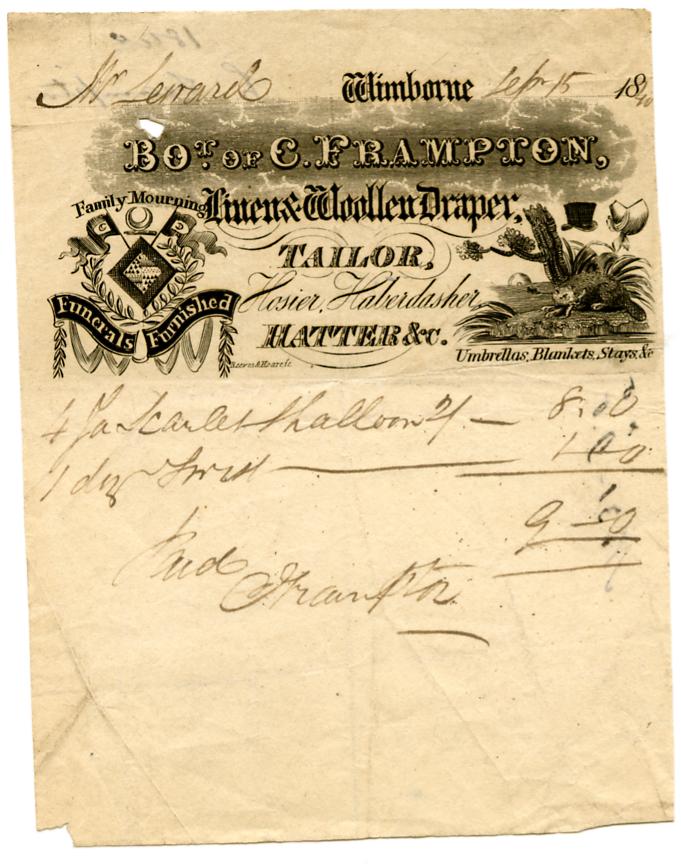 Mr Leward Wimborne Sepr 15 1840
BOT. OF C. FRAMPTON,
Family Mourning
Linen & Woollen Draper,
TAILOR,
Hosier, Haberdasher,
HATTER &c.
Funerals Furnished
Umbrellas, Blankets, Stays, &c
Reeves & Hoare sc
4 Yds Scarlet Shalloon 2/ — 8:0
1 doz Twist — 1:0
9—0
Paid
Frampton